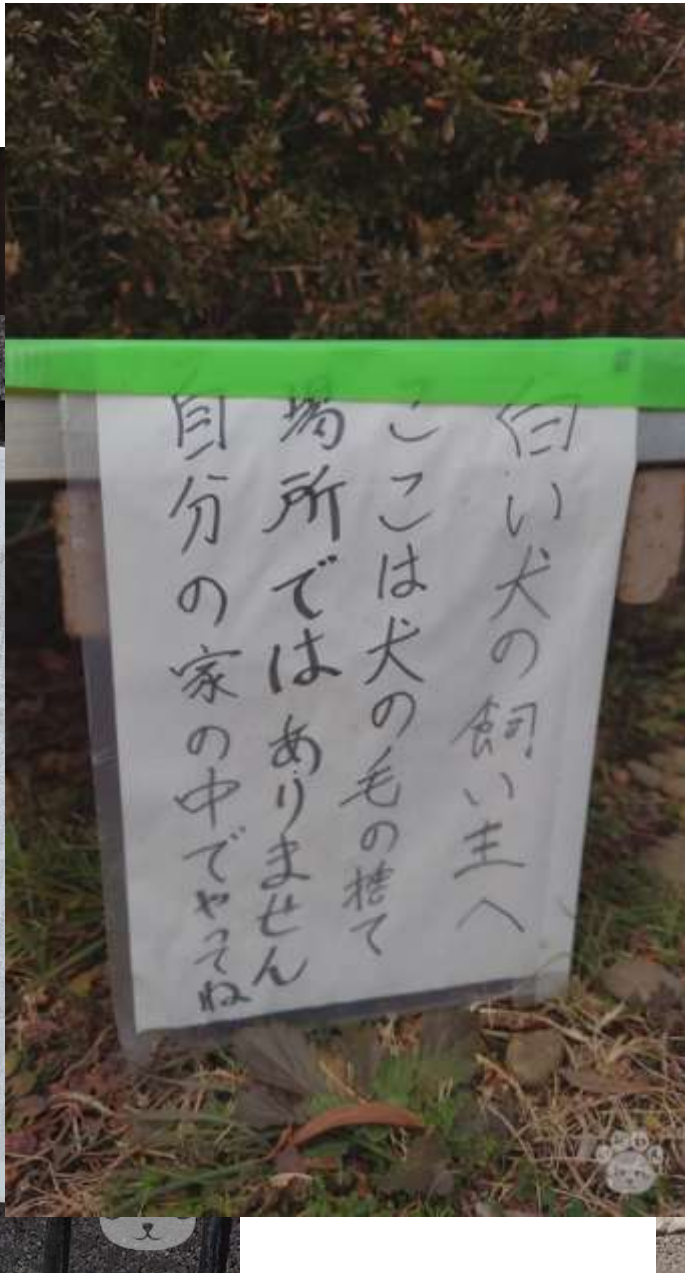 白い犬の飼い主へ
ここは犬の毛の捨て
場所ではありません
自分の家の中でやってね